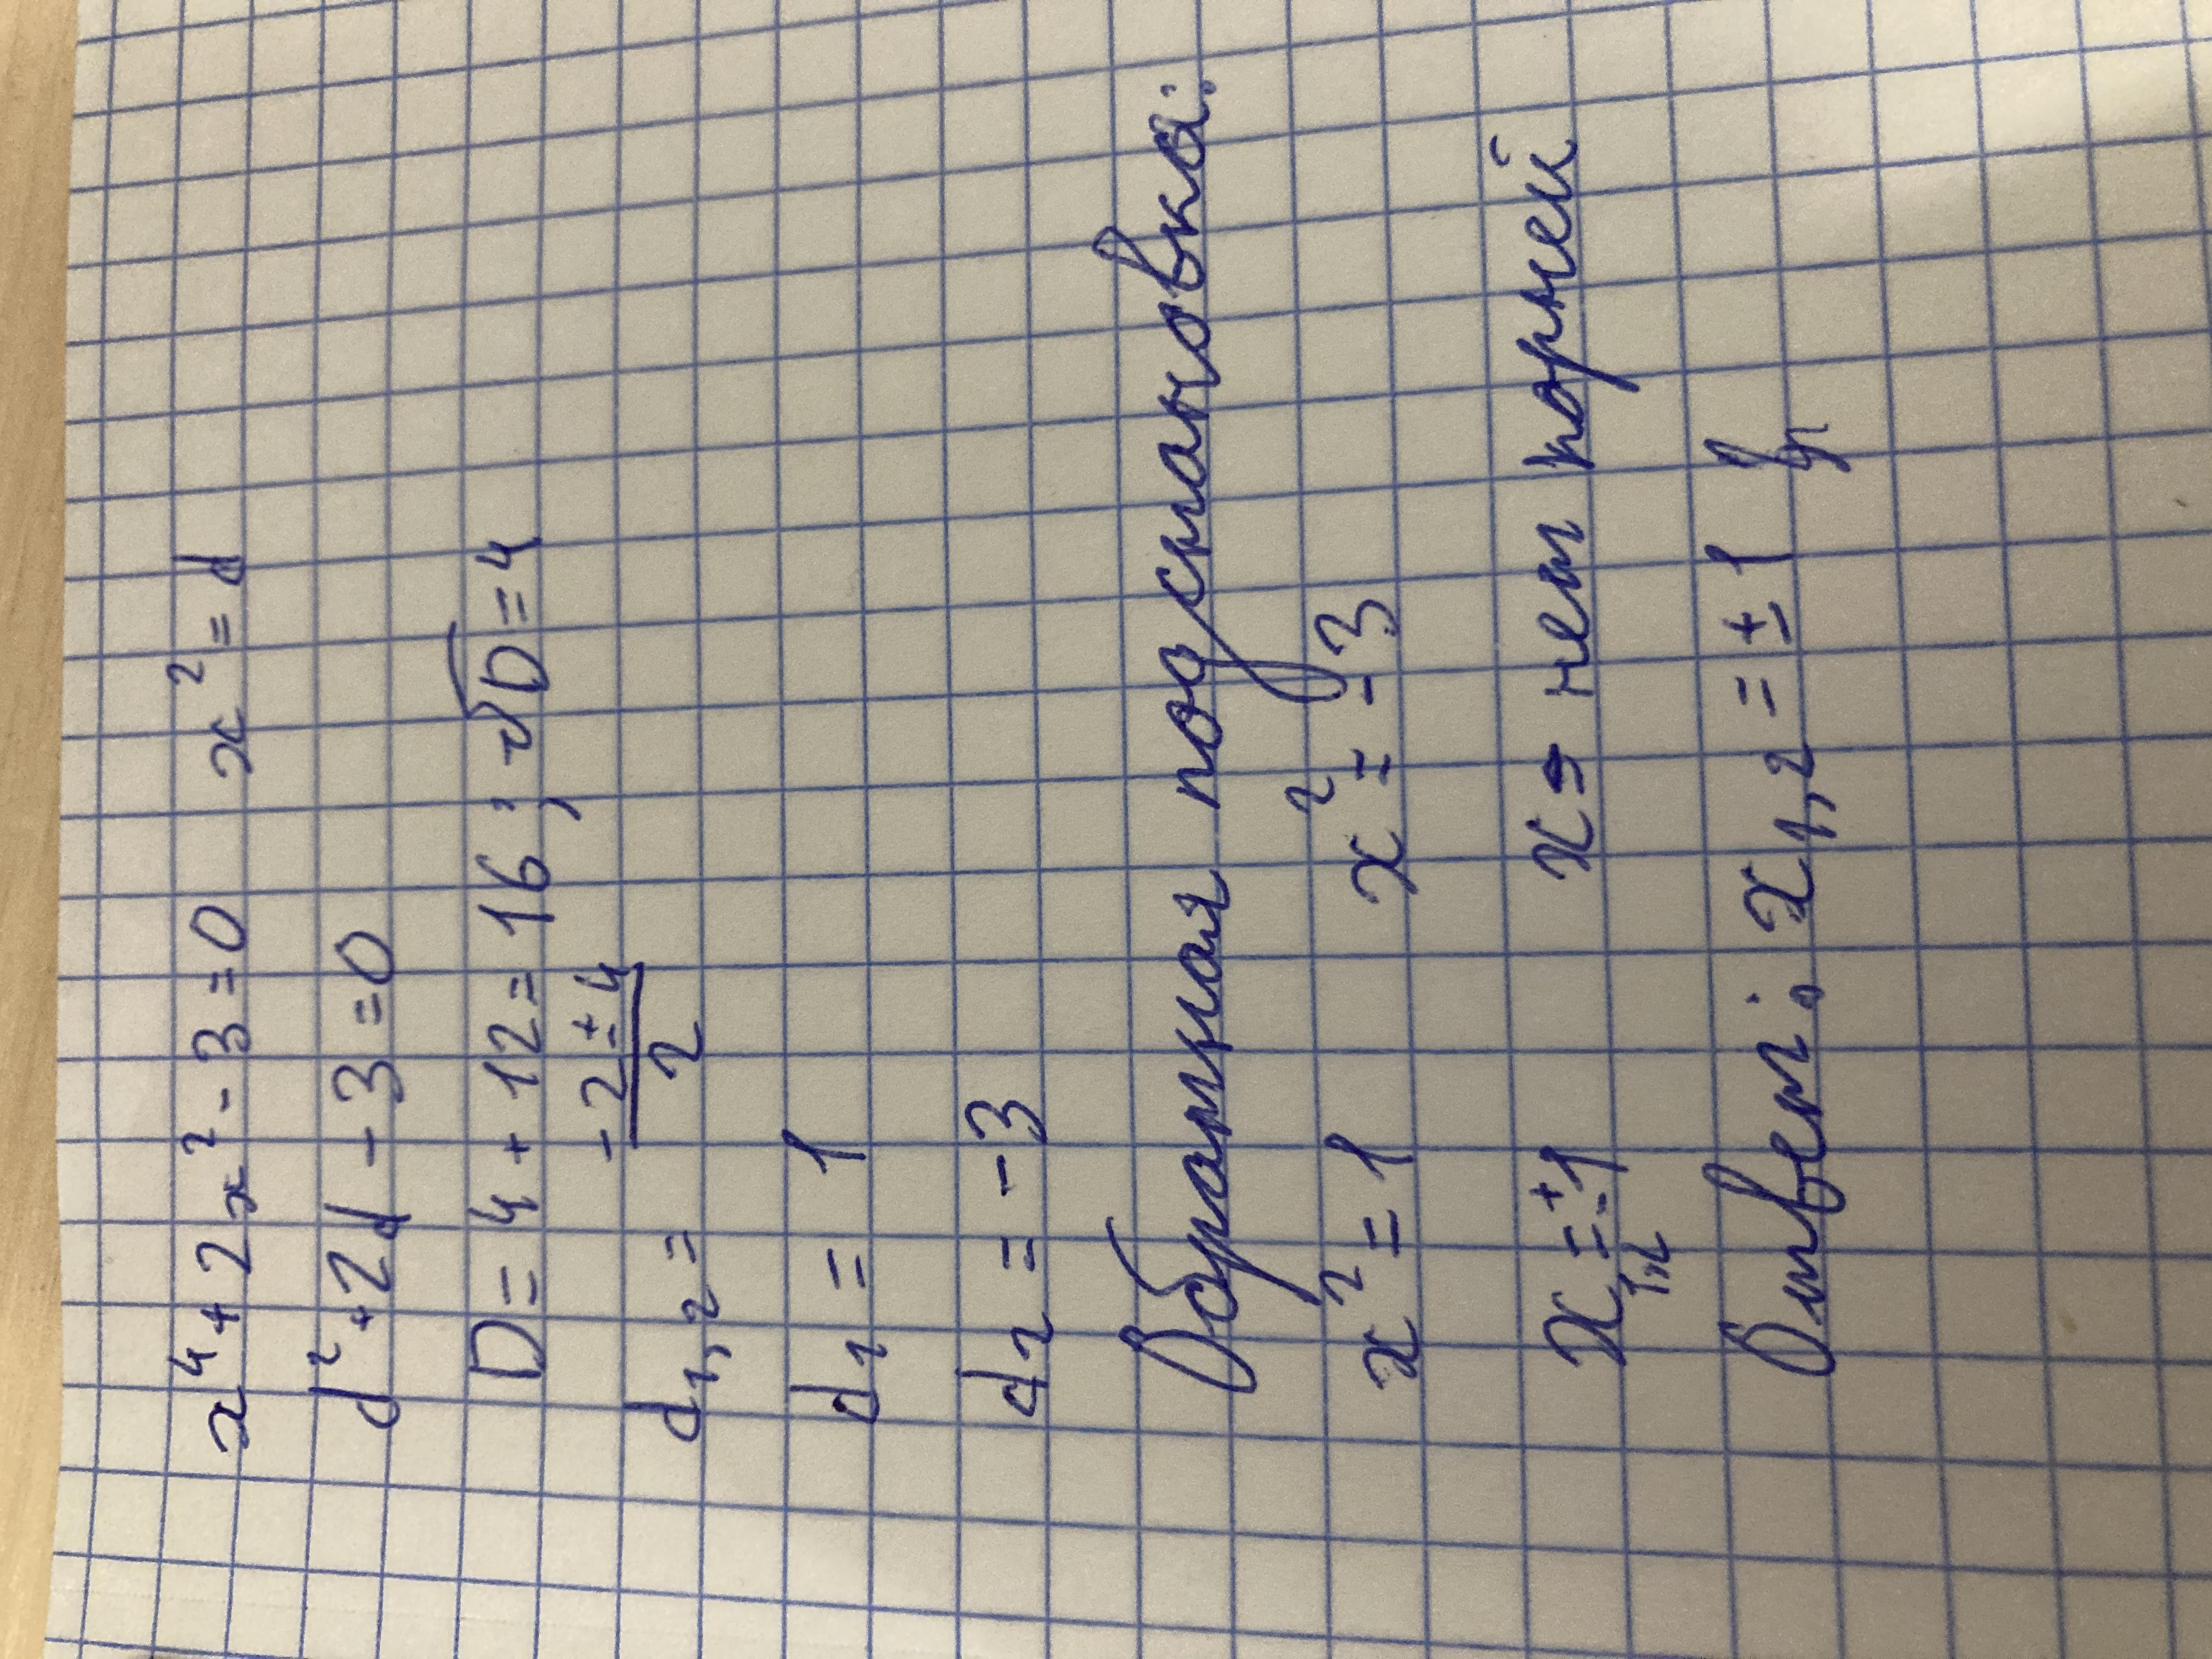 x⁴ + 2x² - 3 = 0 x² = d
d² + 2d - 3 = 0
D = 4 + 12 = 16 ; √D = 4
d₁,₂ = (-2 ± 4)/2
d₁ = 1
d₂ = -3
Обратная подстановка:
x² = 1 x² = -3
x₁,₂ = ±1 x → нет корней
Ответ: x₁,₂ = ± 1